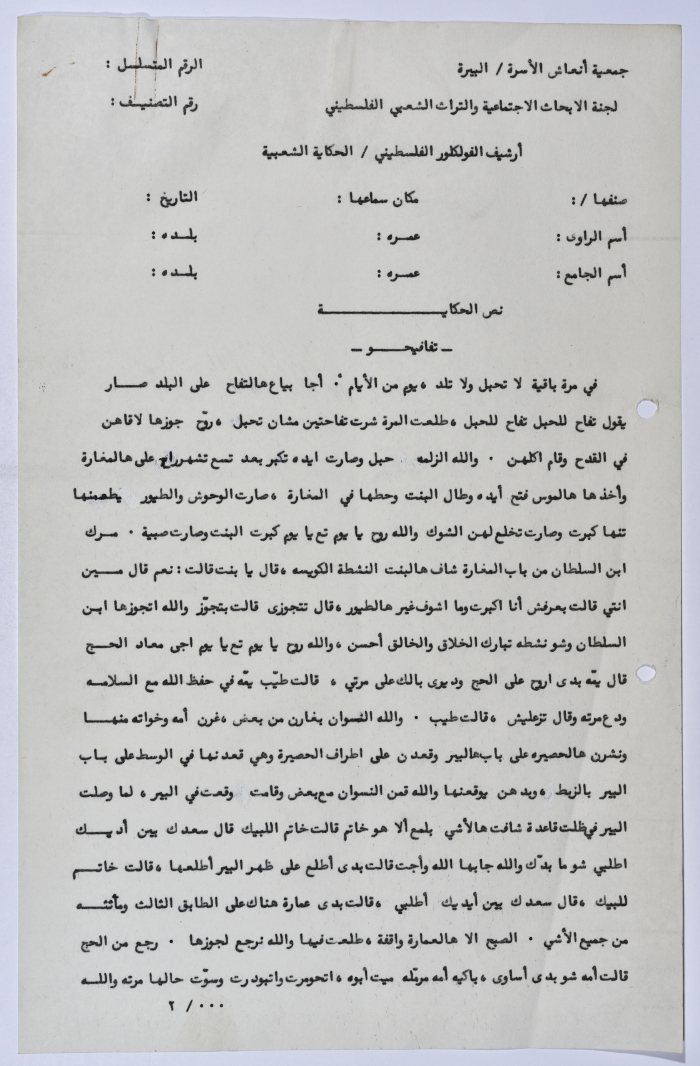 جمعية أنعاش الأسرة / البيرة
الرقم المتسلسل :
لجنة الابحاث الاجتماعية والتراث الشعبي الفلسطيني
رقم التصنيف :
أرشيف الفولكلور الفلسطيني / الحكاية الشعبية
صنفها / : مكان سماعها : التاريخ :
أسم الراوى : عمره : بلده :
أسم الجامع : عمره : بلده :
نص الحكاية
ـ تفافيحو ـ
في مرة باقية لا تحبل ولا تلد ، يوم من الأيام . أجا بياع هالتفاح على البلد صار
يقول تفاح للحبل تفاح للحبل ، طلعت المرة شرت تفاحتين مشان تحبل ، روّح جوزها لاقاهن
في القدح وقام اكلهن . والله الزلمه حبل وصارت ايده تكبر بعد تسع تشهر راح على هالمغارة
وأخذها هالموس فتح أيده وطال البنت وحطها في المغارة ، صارت الوحوش والطيور يطعمنها
تنها كبرت وصارت تخلع لهن الشوك والله روح يا يوم تع يا يوم كبرت البنت وصارت صبية . مرك
ابن السلطان من باب المغارة شاف هالبنت النشطة الكويسه ، قال يا بنت قالت : نعم قال مين
انتي قالت بعرفش أنا اكبرت وما اشوف غير هالطيور ، قال تتجوزى قالت بتجوّز والله اتجوزها ابن
السلطان وشو نشطه تبارك الخلاق والخالق أحسن ، والله روح يا يوم تع يا يوم اجى معاد الحج
قال يمّه بدى اروح على الحج وديرى بالك على مرتي ، قالت طيّب يمّه في حفظ الله مع السلامه
ودع مرته وقال تزعليش ، قالت طيب . والله النسوان بغارن من بعض ، غرن أمه وخواته منها
ونشرن هالحصيره على باب هالبير وقعدن على اطراف الحصيرة وهي قعدنها في الوسط على باب
البير بالزبط ، وبدهن يوقعنها والله قمن النسوان مع بعض وقامت وقعت في البير ، لما وصلت
البير في ظلت قاعدة شافت هالأشي بلمع ألا هو خاتم قالت خاتم اللبيك قال سعدك بين أديك
اطلبي شو ما بدّك والله جابها الله وأجت قالت بدى أطلع على ظهر البير أطلعها ، قالت خاتم
للبيك ، قال سعدك بين أيديك أطلبي ، قالت بدى عمارة هناك على الطابق الثالث ومأثثه
من جميع الأشي . الصبح الا هالعمارة واقفة ، طلعت فيها والله نرجع لجوزها . رجع من الحج
قالت أمه شو بدى أساوى ، باكيه أمه مرمّله ميت أبوه ، اتحومرت واتبودرت وسوّت حالها مرته والله
٢ / ٠٠٠